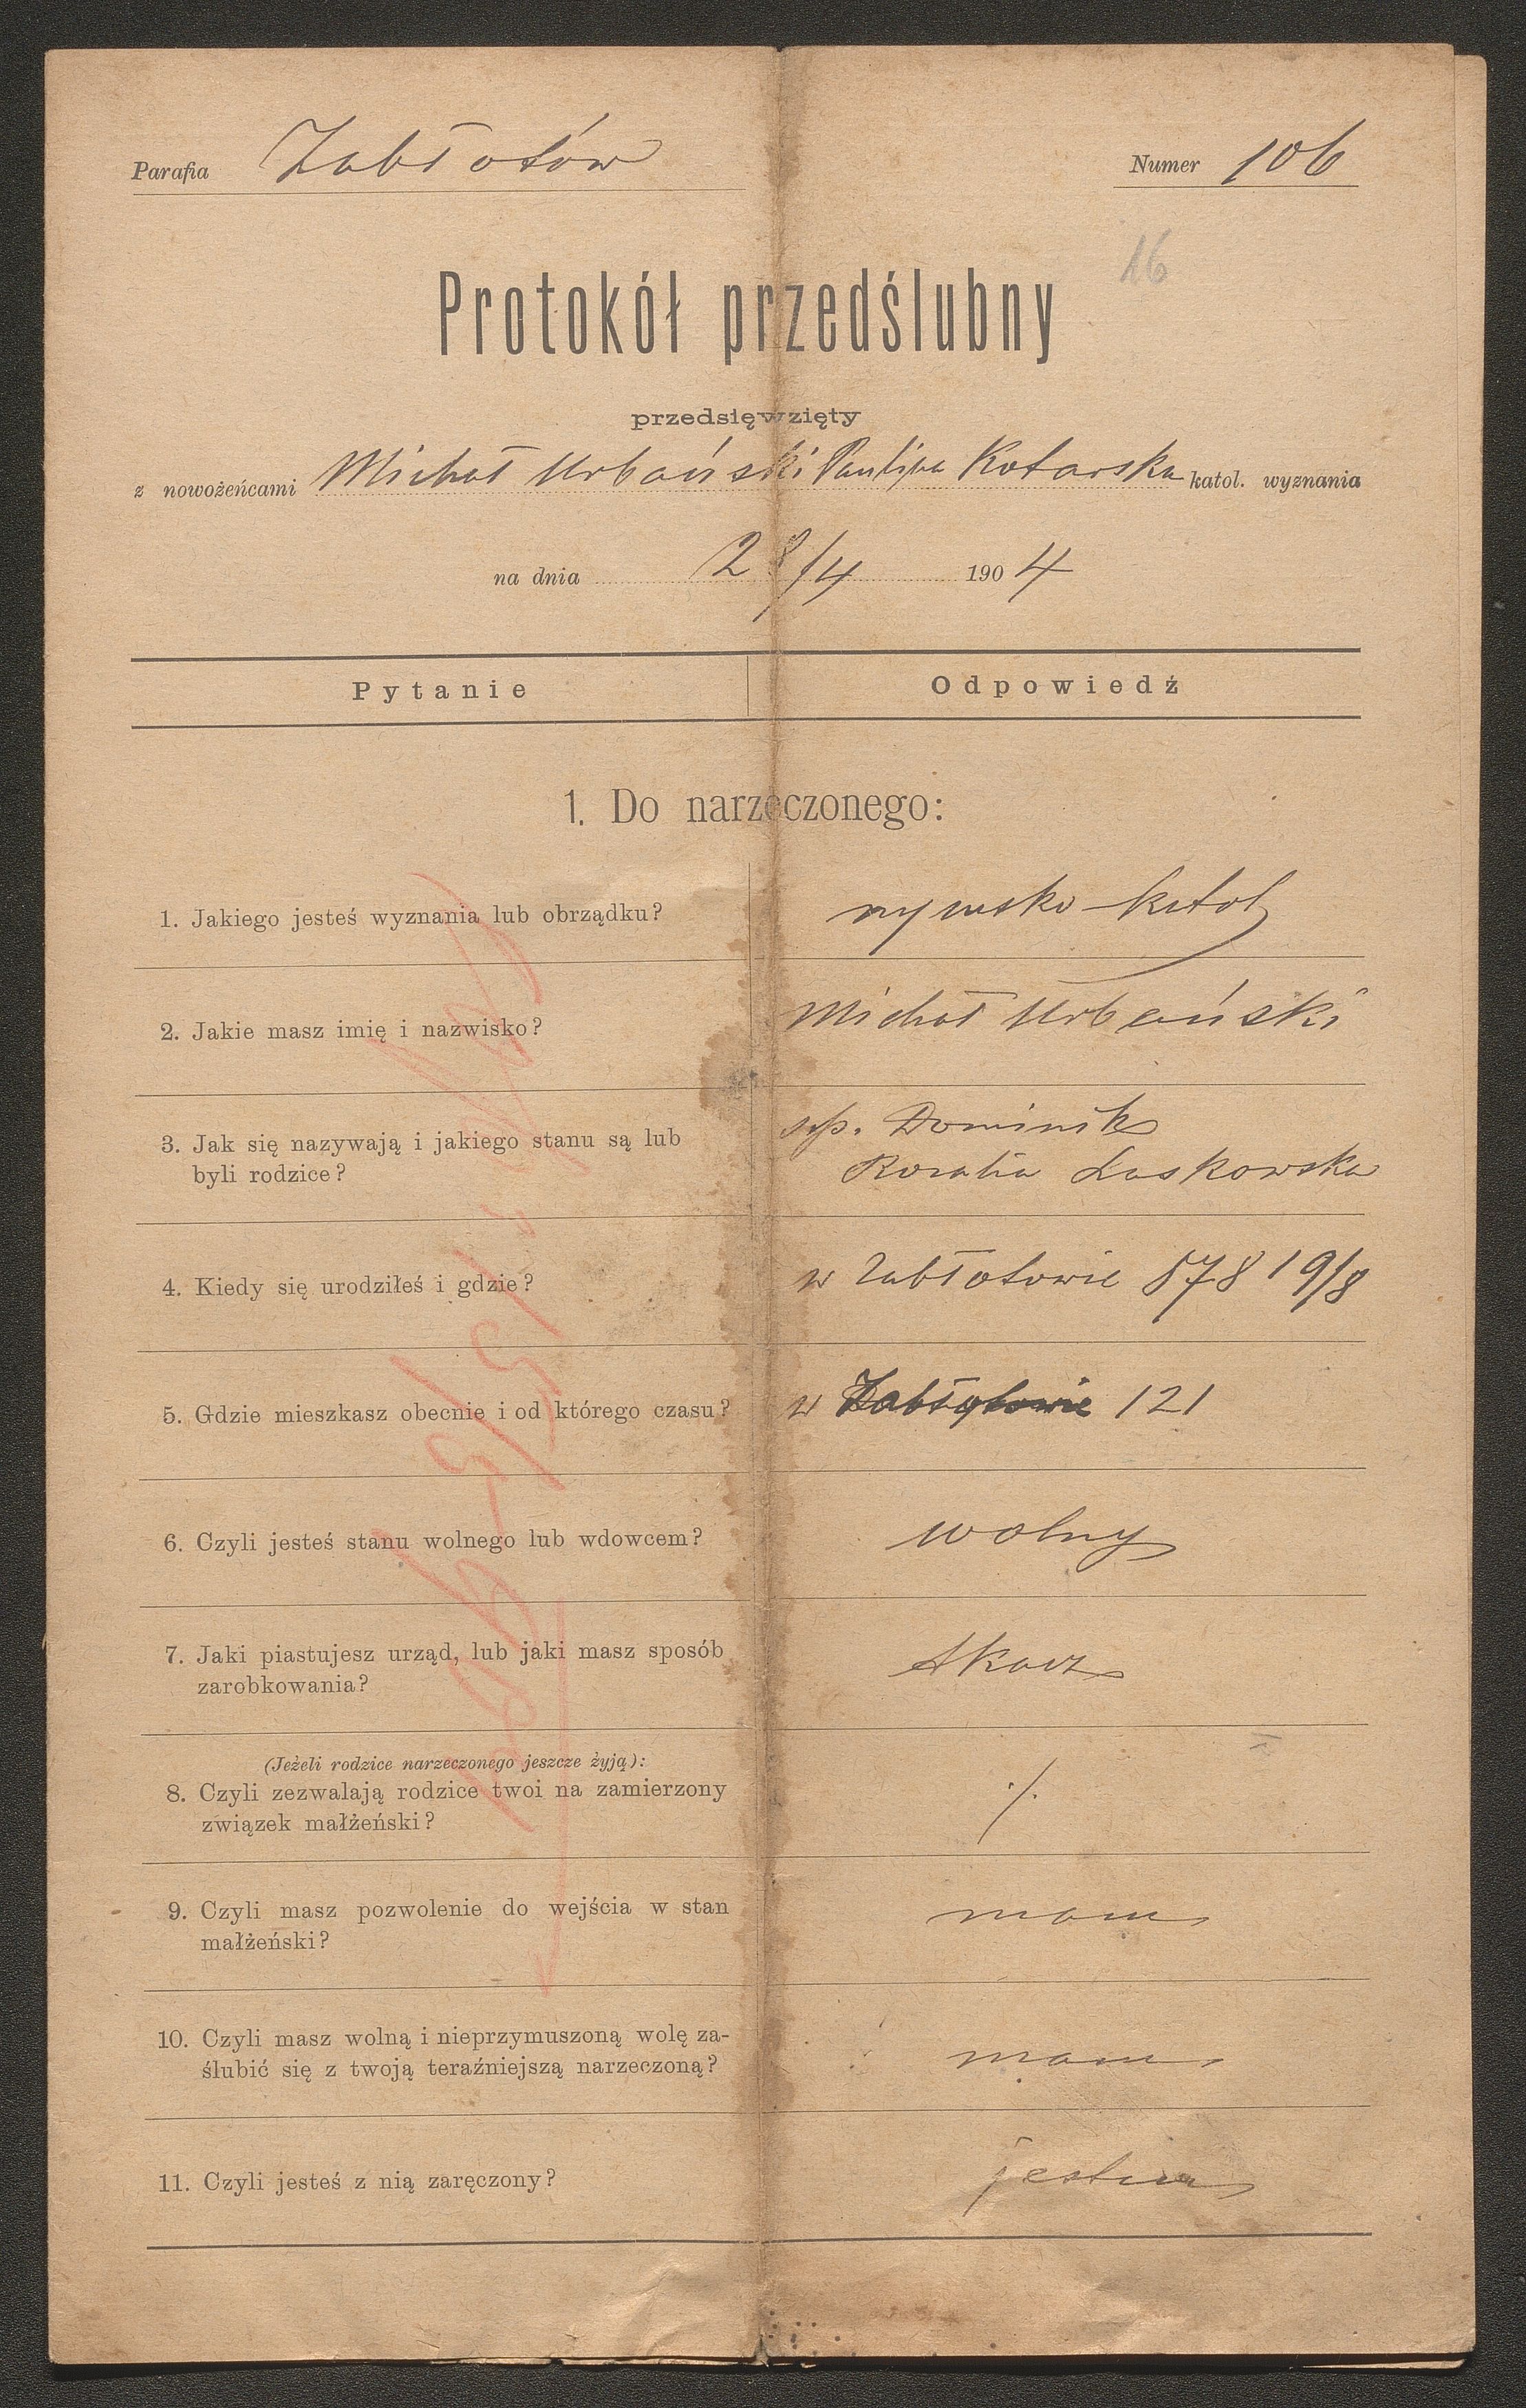 Parafia Zabłotów Numer 106
16
Protokół przedślubny
przedsięwzięty
z nowożeńcami Michał Urbański Paulina Kotarska katol. wyznania
na dnia 28/4 1904
Pytanie Odpowiedź
1. Do narzeczonego:
1. Jakiego jesteś wyznania lub obrządku? rymsko-katol
2. Jakie masz imię i nazwisko? Michał Urbański
3. Jak się nazywają i jakiego stanu są lub
byli rodzice?
Dominik
Rozalia Laskowska
4. Kiedy się urodziłeś i gdzie? w Zabłotowie 878 19/8
5. Gdzie mieszkasz obecnie i od którego czasu? w Zabłotowie 121
6. Czyli jesteś stanu wolnego lub wdowcem? wolny
7. Jaki piastujesz urząd, lub jaki masz sposób
zarobkowania?
tkacz
(Jeżeli rodzice narzeczonego jeszcze żyją):
8. Czyli zezwalają rodzice twoi na zamierzony
związek małżeński?
./.
9. Czyli masz pozwolenie do wejścia w stan
małżeński?
mam
10. Czyli masz wolną i nieprzymuszoną wolę za-
ślubić się z twoją teraźniejszą narzeczoną?
mam
11. Czyli jesteś z nią zaręczony? jestem